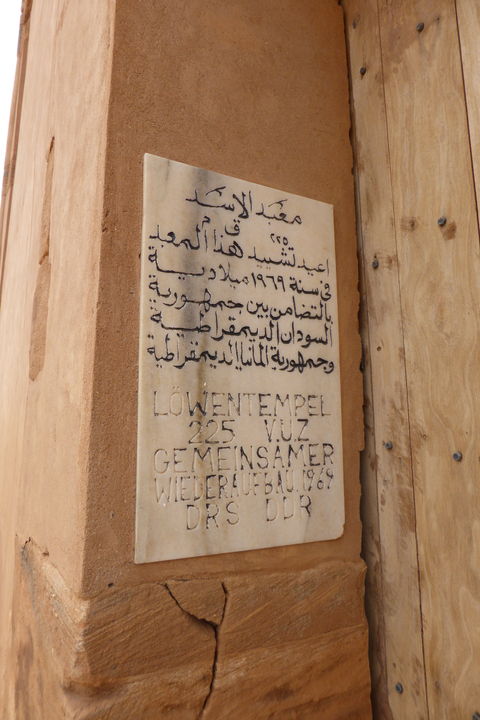 معبد الاسد
٢٢٥ ق م
اعيد تشييد هذا المعبد
في سنة ١٩٦٩ ميلادية
بالتضامن بين جمهورية
السودان الديمقراطية
وجمهورية المانيا الديمقراطية
LÖWENTEMPEL
225 V.U.Z
GEMEINSAMER
WIEDERAUFBAU 1969
DRS DDR